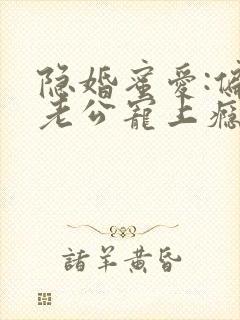 隐婚蜜爱:偏
老公宠上瘾
諸羊黄昏